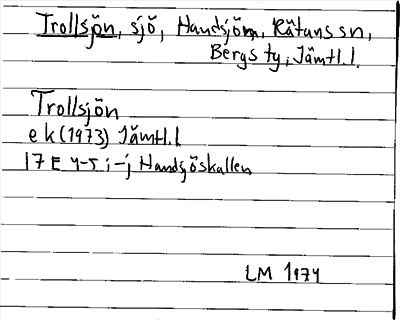 Trollsjön, sjö, Handsjöm, Rätans sn,
Bergs ty, Jämtl.l.
Trollsjön
ek (1973) Jämtl.l
17E 4-5 i-j Handsjöskallen
LM 1974